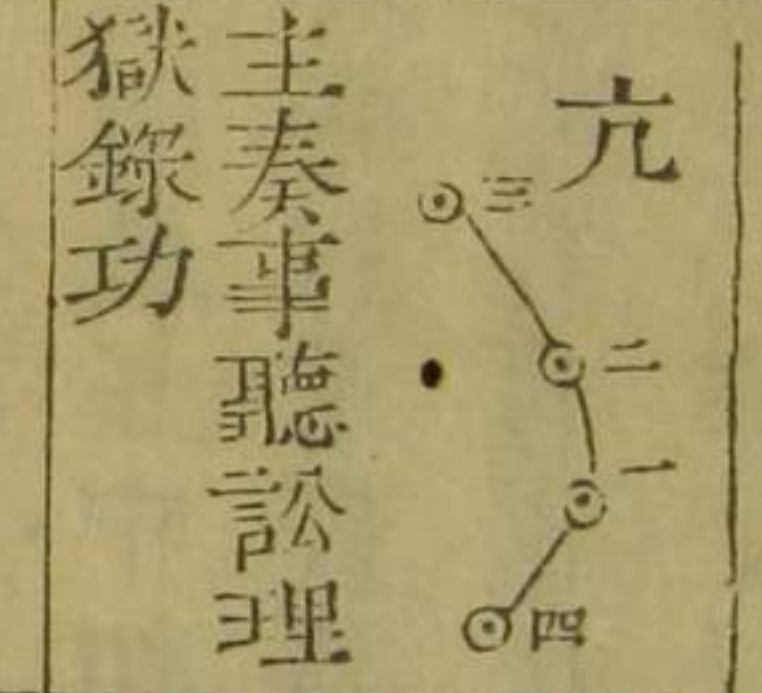 亢
三
二
一
四
主奏事聽訟理
獄錄功